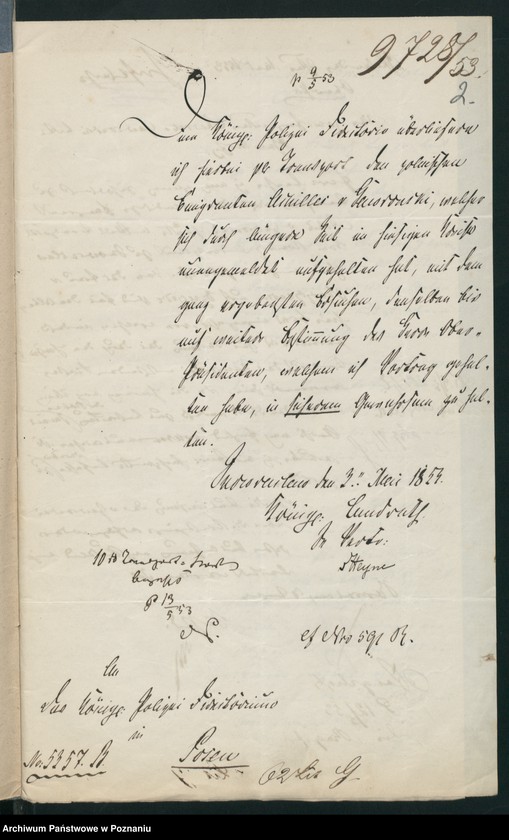 9728/53.
p 9/5 53
2.
Dem Königl. Polizei Direktorio überliefere
ich hierbei per Transport den polnischen
Emigranten Camillus v. Taworowski, welcher
sich durch längere Zeit im hiesigen Kreise
unangemeldet aufgehalten hat, mit dem
ganz ergebensten Ersuchen, denselben bis
auf weitere Bestimmung des Herrn Ober-
Präsidenten, welchem ich Vortrag gehal-
ten habe, in sicherem Gewahrsam zu hal-
ten.
Inowraclaw den 3. Mai 1853.
Königl. Landrath.
In Vertr:
v Heyne
Transport
p 13/5 53
cf Nro 591 R.
An
das Königl. Polizei Direktorium
in
Posen
No. 5357. R.
Archiwum Państwowe w Poznaniu
szukajwarchiwach.gov.pl